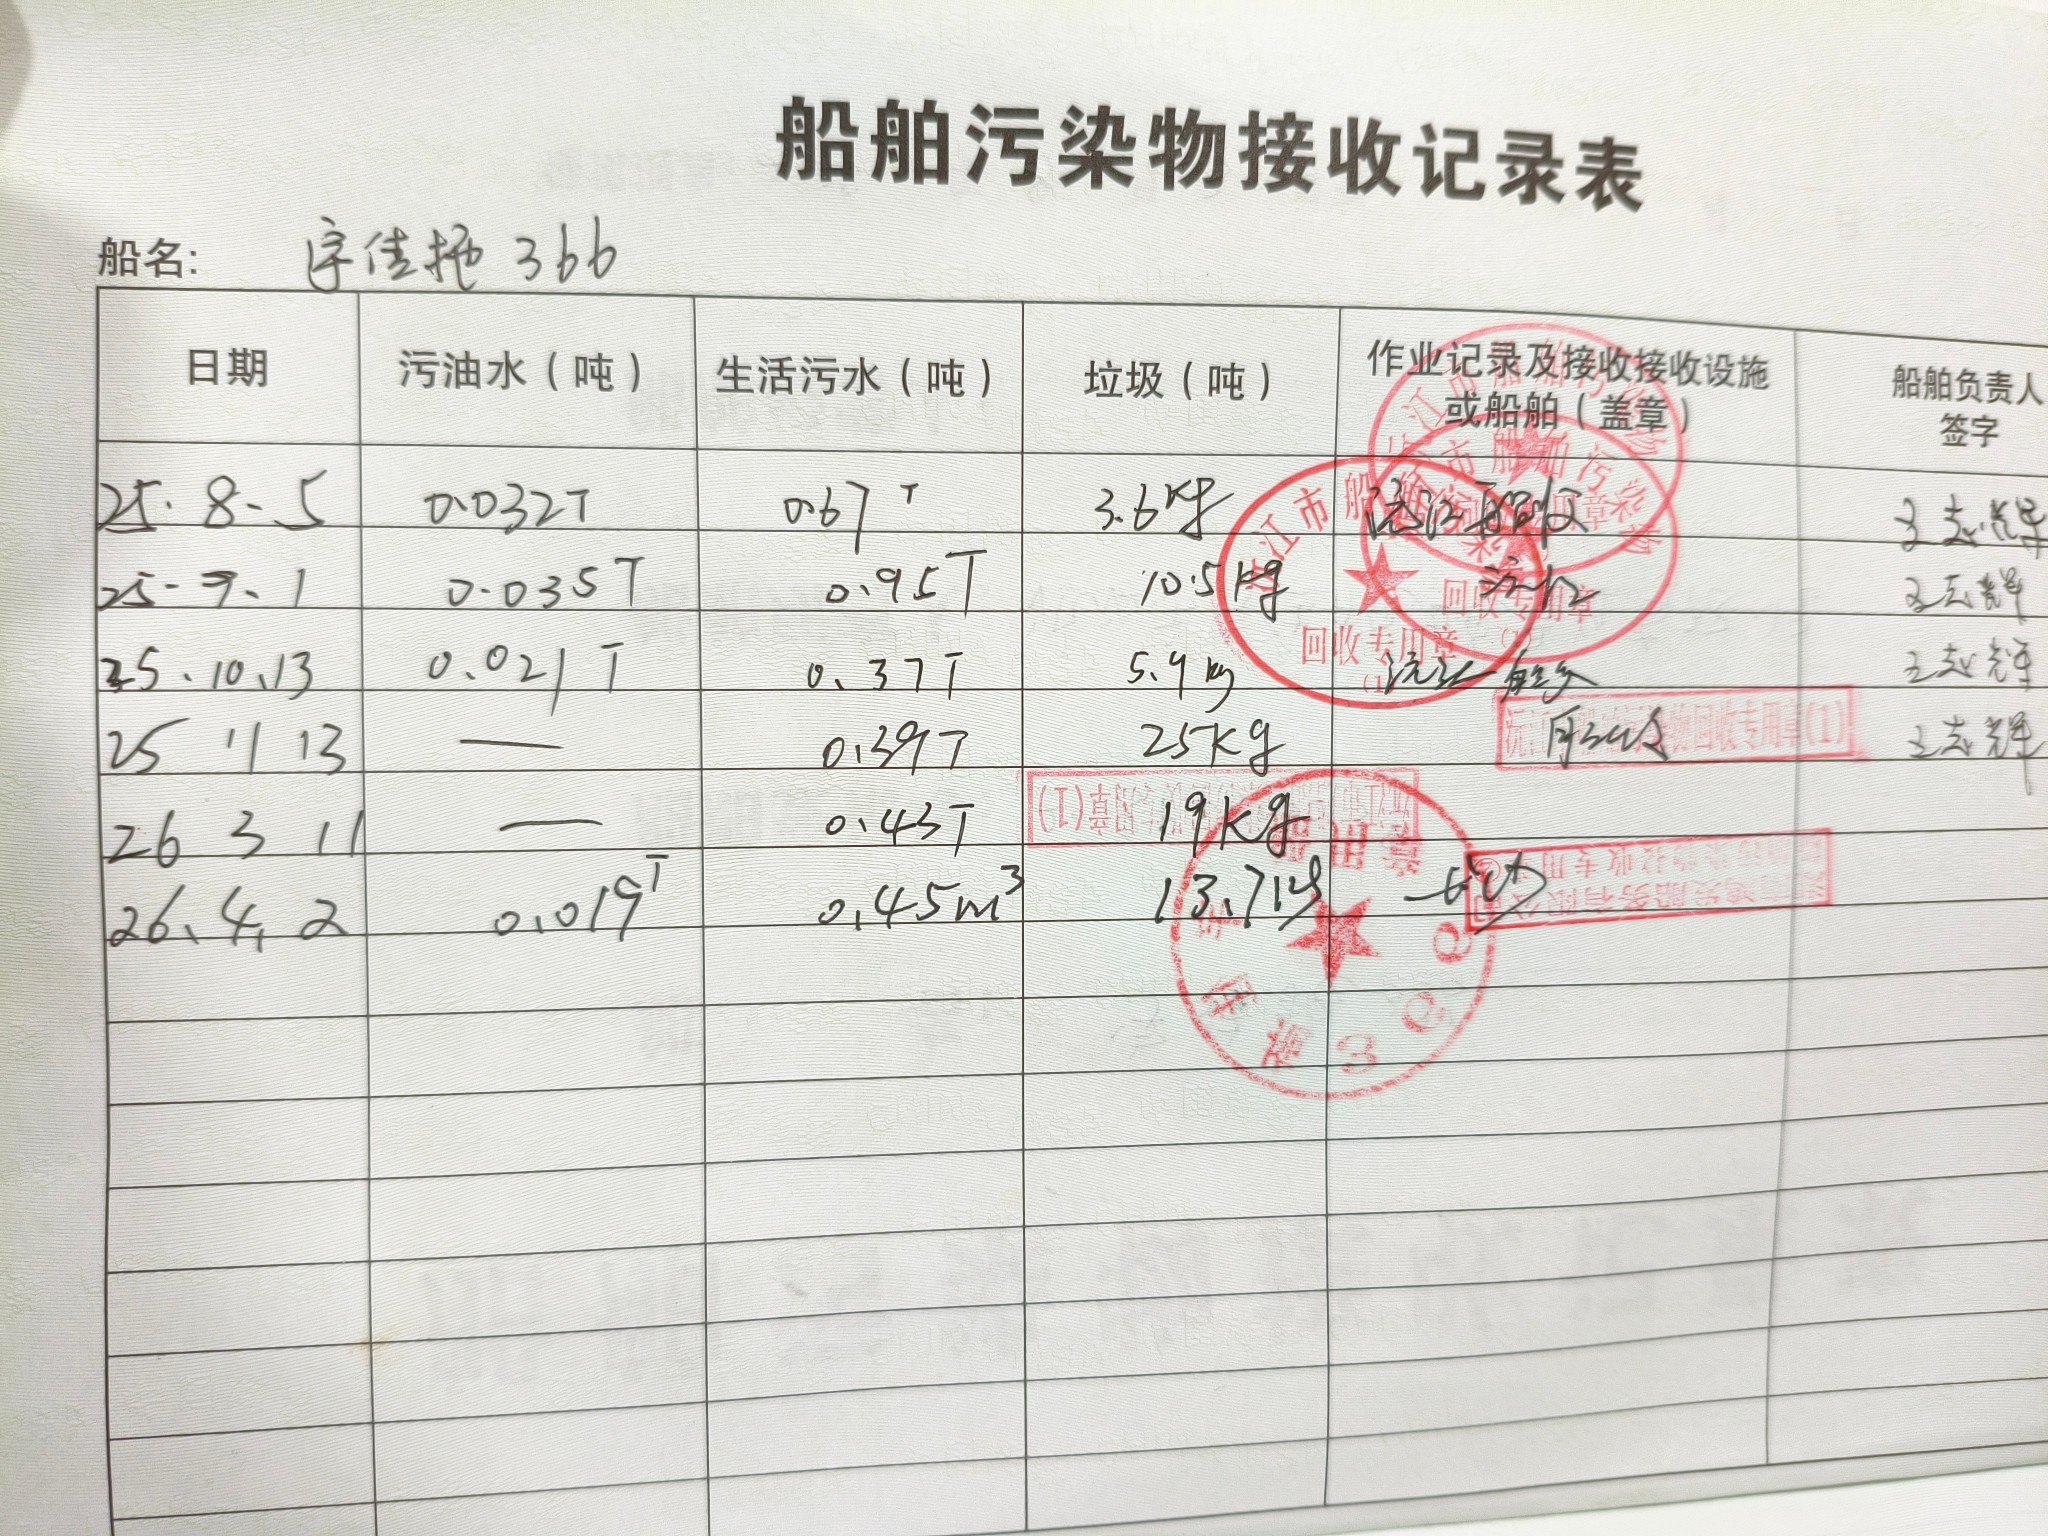 船舶污染物接收记录表
船名: 宇佳拖 366
日期 污油水（吨） 生活污水（吨） 垃圾（吨） 作业记录及接收接收设施或船舶（盖章） 船舶负责人签字
25.8-5 0.032T 0.67T 3.6kg 沅江 王志辉
25-9.1 0.035T 0.95T 10.5kg 沅江 王志辉
25.10.13 0.021T 0.37T 5.9kg 沅江 王志辉
25 11 13 — 0.39T 25kg 王志辉
26 3 11 — 0.43T 19kg
26.4.2 0.019T 0.45m³ 13.7kg
沅江市船舶污染物
回收专用章
(1)
回收专用章
(1)